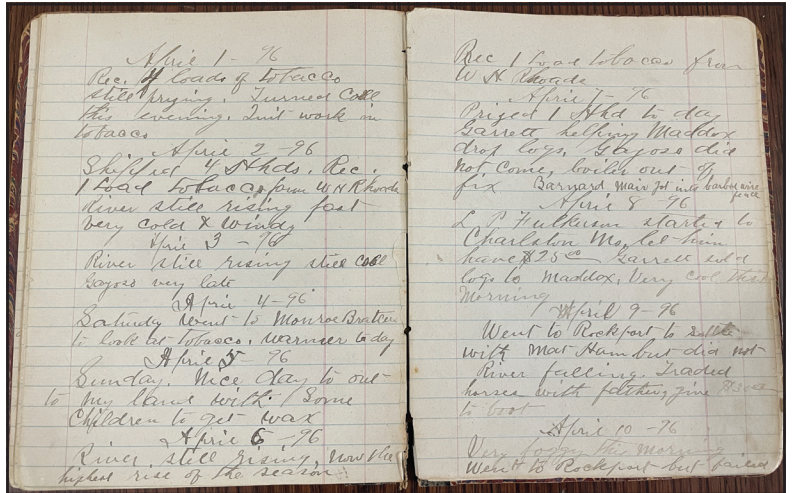 April 1 - 96
Rec. 4 loads of tobacco
still prizing. Turned Cool
this evening. Quit work in
tobacco
April 2 - 96
Shipped 4 Hhds. Rec.
1 Load tobacco from W H Rhoads
River still rising fast
very cold & windy
April 3 - 96
River still rising still cool
Gayoso very late
April 4 - 96
Saturday went to Monroe
to look at tobacco. warmer to day
April 5 - 96
Sunday. Nice day to out
to my land with Some
Children to get wax
April 6 - 96
River still rising. now the
highest rise of the season
Rec 1 Load tobacco from
W H Rhoads
April 7 - 96
Prized 1 Hhd to day
Garrett helping Maddox
drop logs. Gayoso did
not come, boiler out of
fix Barnard mair got into barbwire
fence
April 8 - 96
L P Fulkerson started to
Charlston Mo, let him
have $25 00 Garrett sold
logs to Maddox. Very cool this
Morning
April 9 - 96
Went to Rockport to settle
with Mat Ham but did not
River falling. Traded
horses with father, give
to boot
April 10 - 96
Very foggy this morning
Went to Rockport but failed